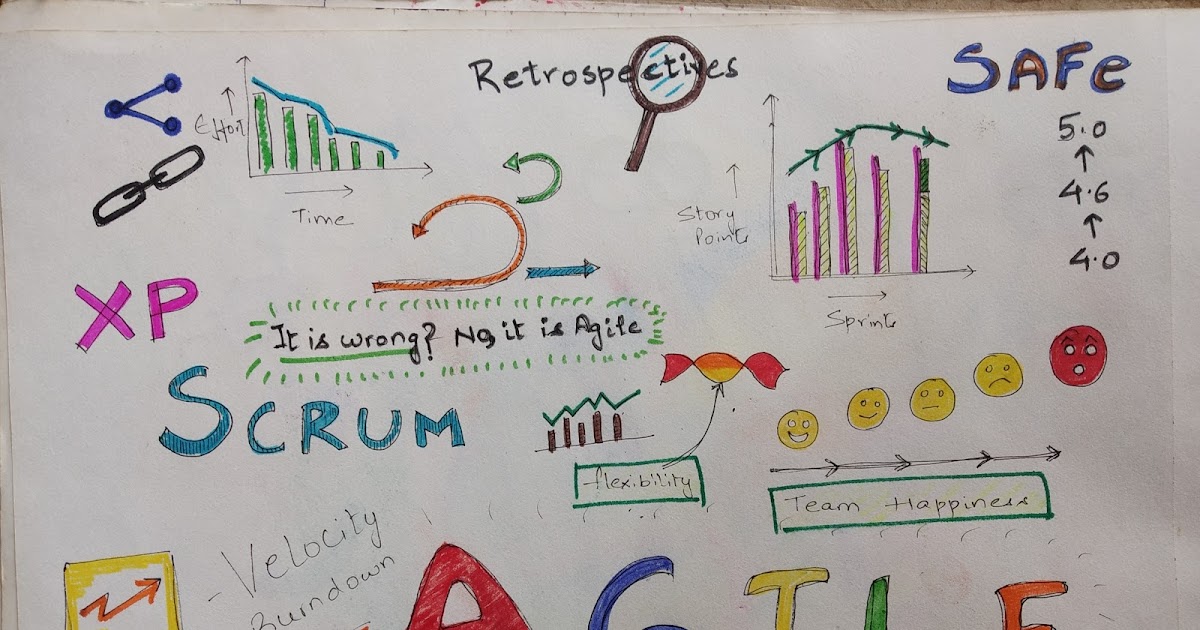 Retrospectives
SAFe
Effort
5.0
4.6
Time
Story
Points
4.0
XP
Sprints
It is wrong? No, it is Agile
SCRUM
flexibility
Team Happiness
Velocity
Burndown
AGILE